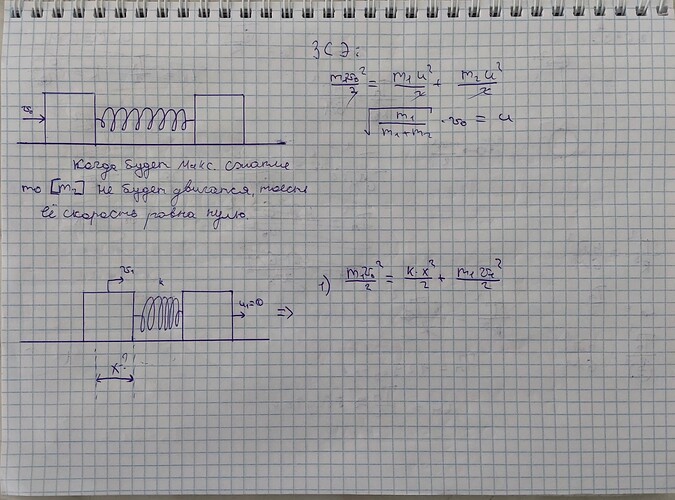 ЗСЭ:
m₁v₀²/2 = m₁u²/2 + m₂u²/2
√(m₁/(m₁+m₂)) · v₀ = u
v₀
Когда будет макс. сжатие
то [m₂] не будет двигатся, тоесть
её скорость равна нулю.
v₁
k
u₁=0
=>
x-?
1) m₁v₀²/2 = k·x²/2 + m₁v₁²/2